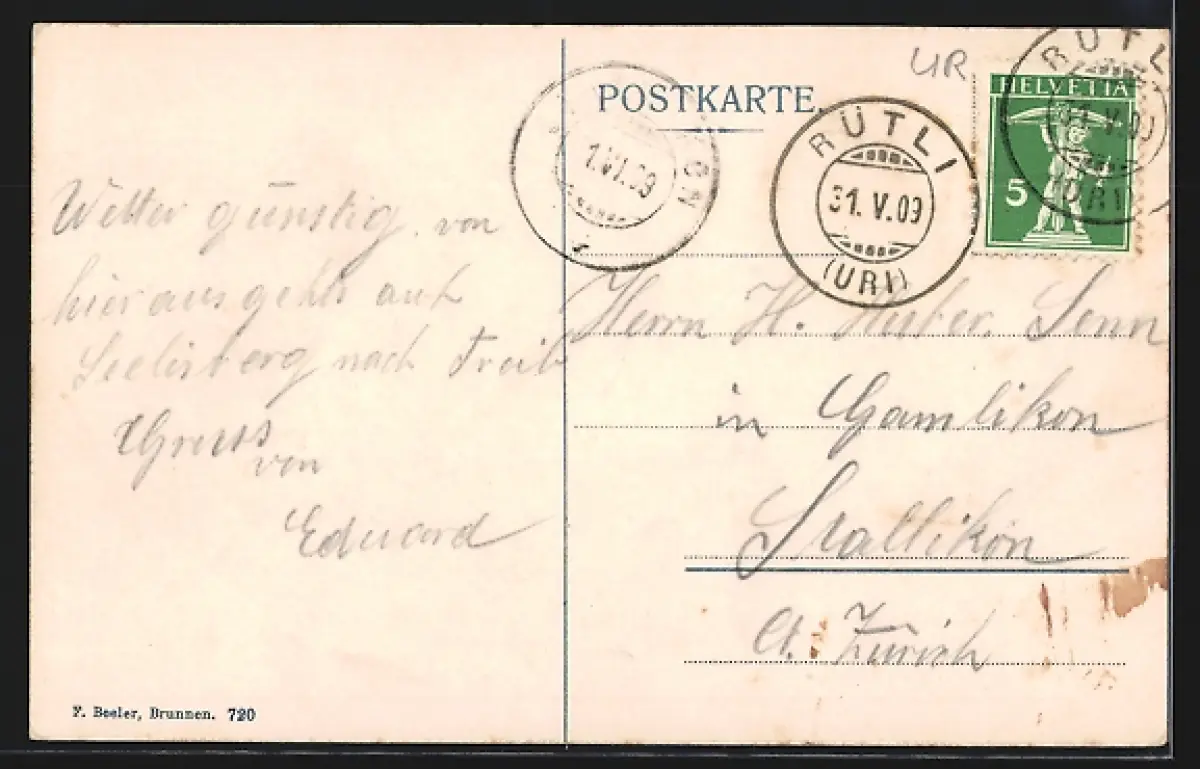 Wetter günstig. von
hier aus gehts auf
Seelisberg nach Treib
Gruss
von
Eduard
F. Beeler, Brunnen. 720
POSTKARTE.
UR
HELVETIA
5
RÜTLI
31. V. 09
(URI)
RÜTLI
31. V. 09
(URI)
KON
1. VI. 09
Herrn H. Huber, Senn
in Gamlikon
Stallikon
Ct. Zürich